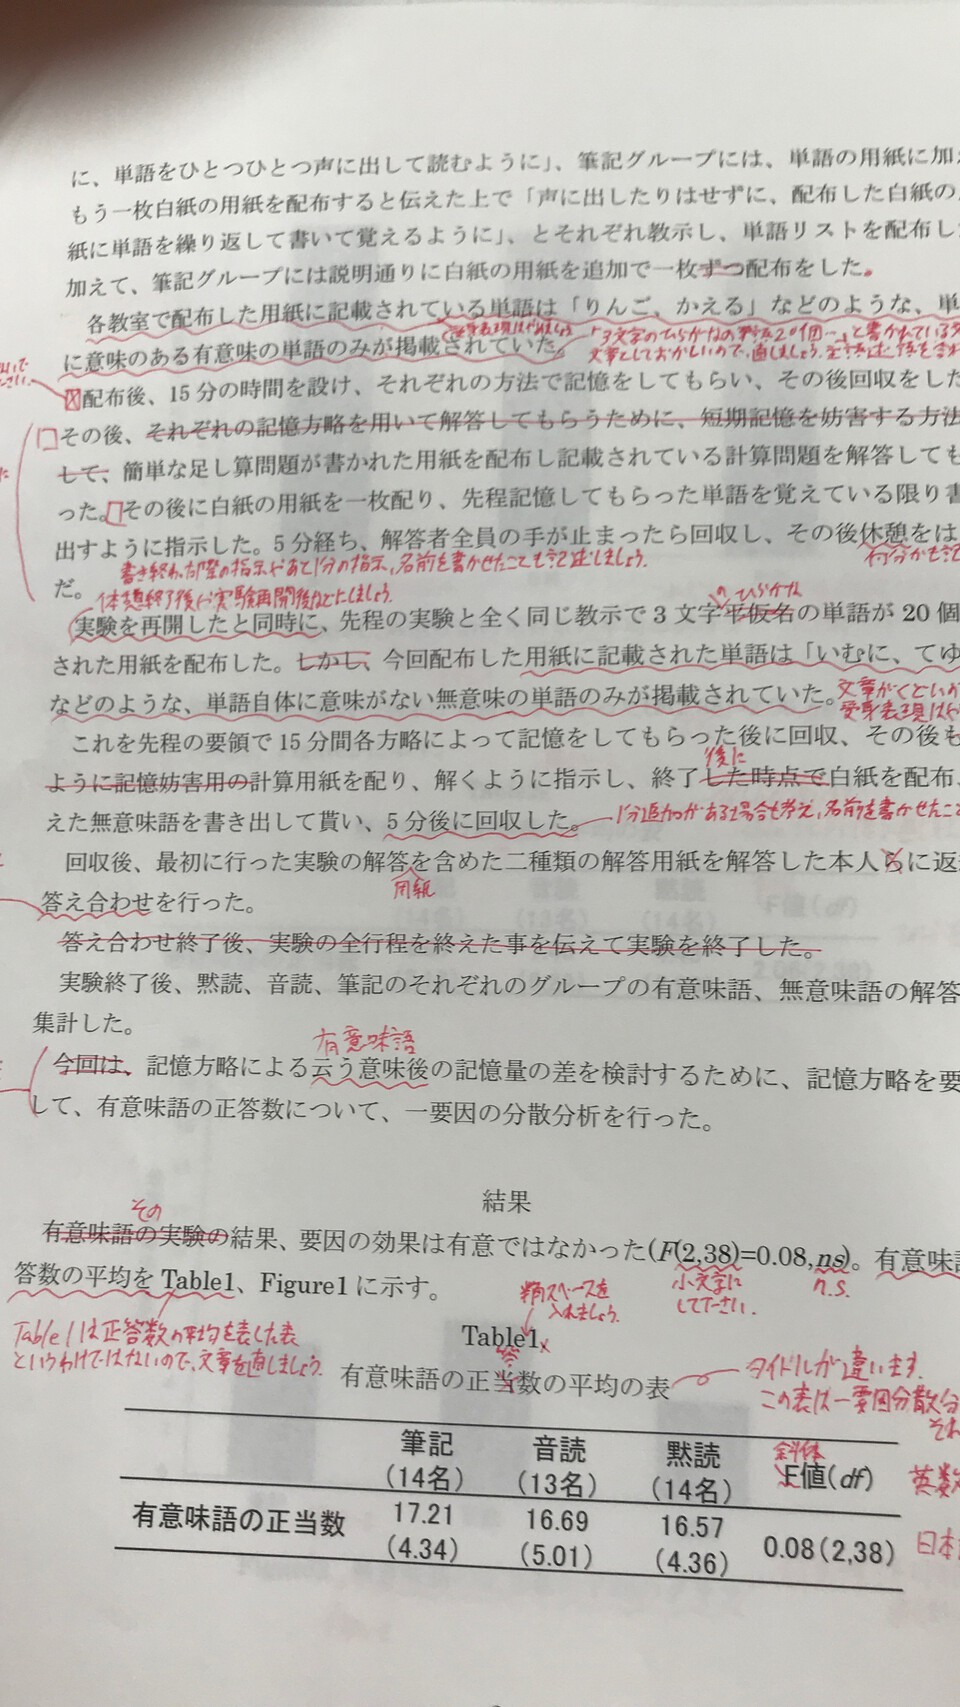 に、単語をひとつひとつ声に出して読むように」、筆記グループには、単語の用紙に加え
もう一枚白紙の用紙を配布すると伝えた上で「声に出したりはせずに、配布した白紙の
紙に単語を繰り返して書いて覚えるように」、とそれぞれ教示し、単語リストを配布し
加えて、筆記グループには説明通りに白紙の用紙を追加で一枚ずつ配布をした。
各教室で配布した用紙に記載されている単語は「りんご、かえる」などのような、単
受身表現はやめましょう
「3文字のひらがなの単語20個…」と書かれている
に意味のある有意味の単語のみが掲載されていた。
文章としておかしいので、直しましょう。
配布後、15分の時間を設け、それぞれの方法で記憶をしてもらい、その後回収をした
その後、それぞれの記憶方略を用いて解答してもらうために、短期記憶を妨害する方法
して、簡単な足し算問題が書かれた用紙を配布し記載されている計算問題を解答しても
った。その後に白紙の用紙を一枚配り、先程記憶してもらった単語を覚えている限り書
出すように指示した。5分経ち、解答者全員の手が止まったら回収し、その後休憩をは
書き終わった際の指示やあと1分の指示、名前を書かせたことも記述しましょう。
何分かも記
だ。
休憩終了後や実験再開後などにしましょう。
の ひらがな
実験を再開したと同時に、先程の実験と全く同じ教示で3文字平仮名の単語が20個
された用紙を配布した。しかし、今回配布した用紙に記載された単語は「いむに、てゆ
などのような、単語自体に意味がない無意味の単語のみが掲載されていた。
文章がくどいか
受身表現はや
これを先程の要領で15分間各方略によって記憶をしてもらった後に回収、その後も
後に
ように記憶妨害用の計算用紙を配り、解くように指示し、終了した時点で白紙を配布、
えた無意味語を書き出して貰い、5分後に回収した。
1分追加がある場合も考え、名前を書かせたこと
回収後、最初に行った実験の解答を含めた二種類の解答用紙を解答した本人らに返
用紙
答え合わせを行った。
答え合わせ終了後、実験の全行程を終えた事を伝えて実験を終了した。
実験終了後、黙読、音読、筆記のそれぞれのグループの有意味語、無意味語の解答
集計した。
有意味語
今回は、記憶方略による云う意味後の記憶量の差を検討するために、記憶方略を要
して、有意味語の正答数について、一要因の分散分析を行った。
結果
その
有意味語の実験の結果、要因の効果は有意ではなかった(F(2,38)=0.08,ns)。有意味語
小文字に
して下さい。
n.s.
答数の平均をTable1、Figure1に示す。
Table1は正答数の平均を表した表
というわけではないので、文章を直しましょう。
半角スペースを
入れましょう。
Table1.
答
有意味語の正当数の平均の表
タイトルが違います。
この表は一要因分散分
それ
筆記 音読 黙読
斜体
(14名) (13名) (14名) F値(df)
英数
有意味語の正当数 17.21 16.69 16.57 0.08(2,38)
(4.34) (5.01) (4.36)
日本